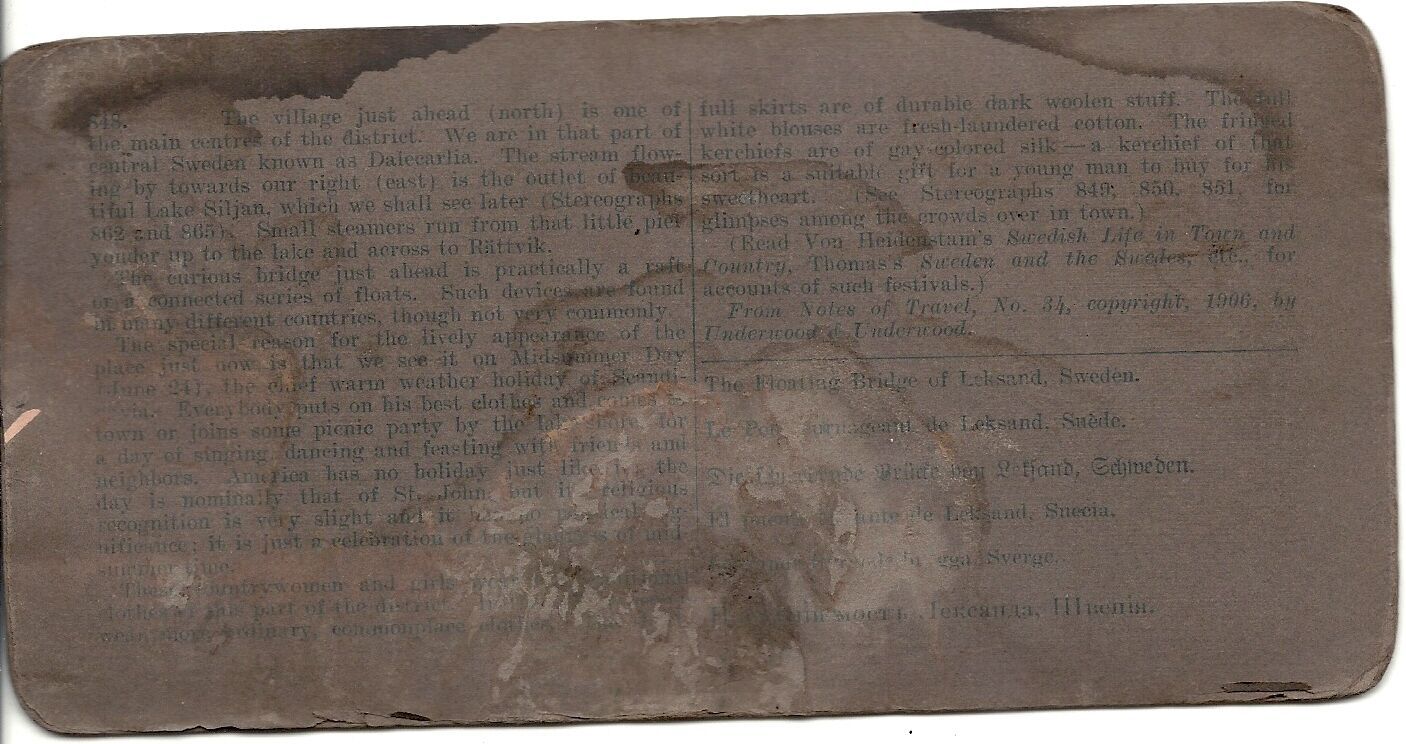 848. The village just ahead (north) is one of
the main centres of the district. We are in that part of
central Sweden known as Dalecarlia. The stream flow-
ing by towards our right (east) is the outlet of beau-
tiful Lake Siljan, which we shall see later (Stereographs
862 and 865). Small steamers run from that little pier
yonder up to the lake and across to Rättvik.
The curious bridge just ahead is practically a raft
or a connected series of floats. Such devices are found
in many different countries, though not very commonly.
The special reason for the lively appearance of the
place just now is that we see it on Midsummer Day
(June 24), the chief warm weather holiday of Scandi-
navia. Everybody puts on his best clothes and comes to
town or joins some picnic party by the lake shore, for
a day of singing, dancing and feasting with friends and
neighbors. America has no holiday just like it; the
day is nominally that of St. John, but its religious
recognition is very slight and it has no
nificance; it is just a celebration of the of mid-
summer time.
These countrywomen and girls
clothes of this part of the district.
ordinary, commonplace clothes,
full skirts are of durable dark woolen stuff. The full
white blouses are fresh-laundered cotton. The fringed
kerchiefs are of gay-colored silk—a kerchief of that
sort is a suitable gift for a young man to buy for his
sweetheart. (See Stereographs 849, 850, 851, for
glimpses among the crowds over in town.)
(Read Von Heidenstam's Swedish Life in Town and
Country, Thomas's Sweden and the Swedes, etc., for
accounts of such festivals.)
From Notes of Travel, No. 34, copyright, 1906, by
Underwood & Underwood.
The Floating Bridge of Leksand, Sweden.
Le Pont de Leksand, Suède.
Die Brücke von Leksand, Schweden.
El de Leksand, Suecia.
Sverge.
мостъ, Лександа, Швеція.